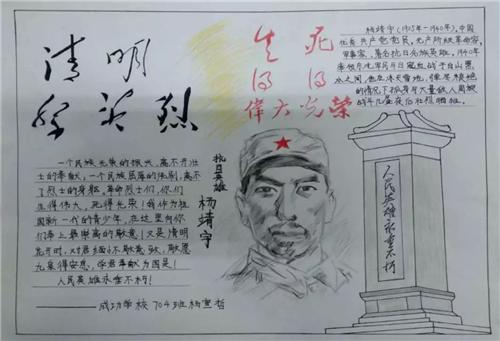 清明
祭英烈
生 死
得 得
偉大光榮
杨靖宇(1905年-1940年),中国
优秀共产党党员,无产阶级革命家,
军事家、著名抗日民族英雄,1940年
率领东北军与日寇血战于白山黑
水之间,他在冰天雪地,弹尽粮绝
的情况下孤身与大量敌人周旋
战斗几昼夜后壮烈牺牲。
一个民族光荣的振兴,离不开壮
士的奉献,一个民族屈辱的洗刷,离不
了烈士的身躯。革命烈士们,你们
生得伟大,死得光荣!我作为祖
国新一代的青少年,在这里向你
们奉上最崇高的敬意!又是清明
花开时,对君缅怀敬意歌,敬愿
九泉得安息,学君奉献为国是!
人民英雄永垂不朽!
——成功学校704班杨宣哲
抗日英雄
杨靖宇
人民英雄永垂不朽